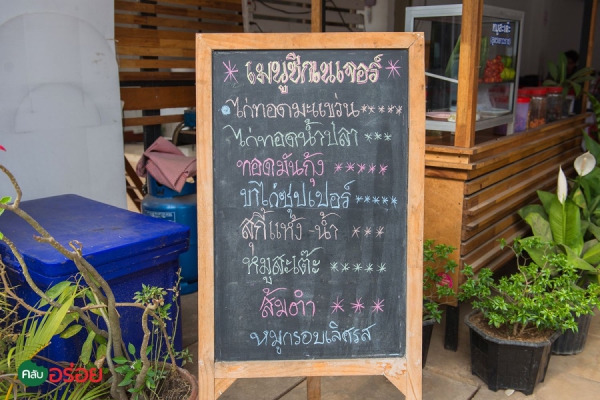 * เมนูซิกเนเจอร์ *
ไก่ทอดมะแขว่น *****
ไก่ทอดน้ำปลา ***
ทอดมันกุ้ง *****
บาร์ไก่ซุปเปอร์ *****
สุกี้แห้ง-น้ำ ***
หมูสะเต๊ะ *****
ส้มตำ ***
หมูกรอบเลิศรส
หมูสะเต๊ะ
คลับ อร่อย